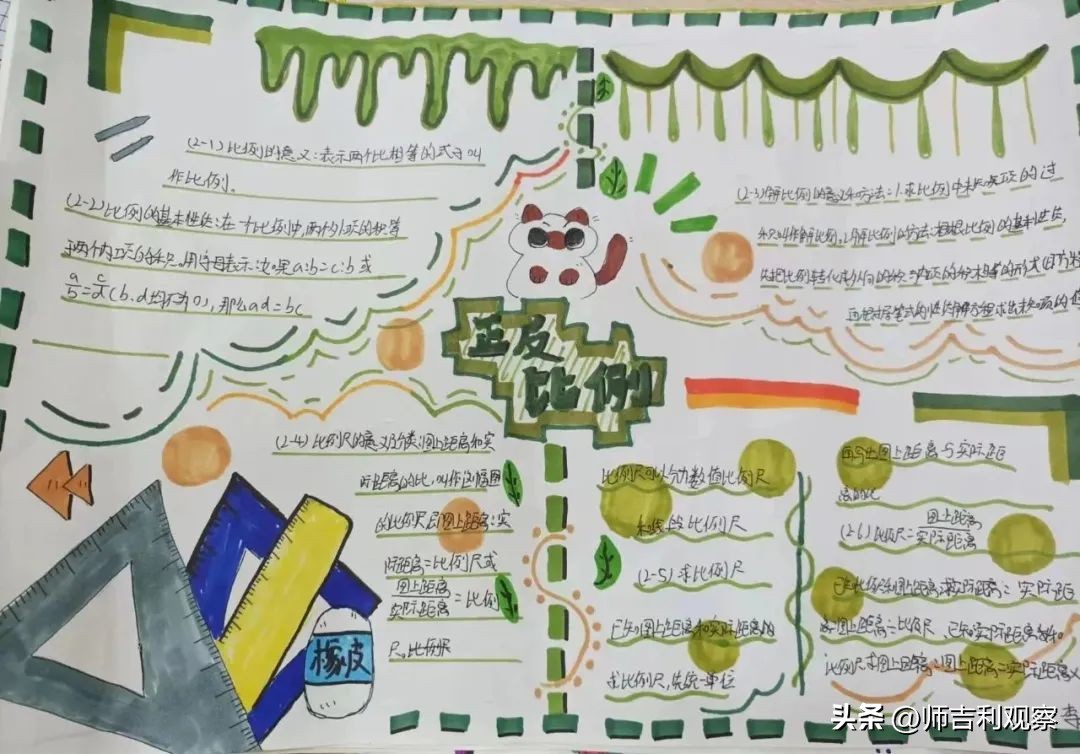 (2-1)比例的意义:表示两个比相等的式子叫
作比例。
(2-2)比例的基本性质:在一个比例中,两个外项的积等
于两个内项的积。用字母表示:如果a:b=c:b或
a/b=c/d(b、d均不为0),那么ad=bc
(2-3)解比例的意义和方法:1.求比例中未知项的过
程叫作解比例。2.解比例的方法:根据比例的基本性质,
先把比例转化成外项的积与内项的积相等的形式
再根据等式的性质解方程求出未知项的值
正反
比例
(2-4)比例尺的意义及分类:图上距离和实
际距离的比,叫作这幅图
的比例尺,即图上距离:实
际距离=比例尺或
图上距离/实际距离=比例
尺。比例尺
橡皮
比例尺可以分为数值比例尺
和线段比例尺
(2-5)求比例尺
已知图上距离和实际距离的
求比例尺,先统一单位
再写出图上距离与实际距
离的比
(2-6)比例尺=图上距离/实际距离
实际距离
比例尺求图上距离:图上距离=实际距离×
头条 @师吉利观察